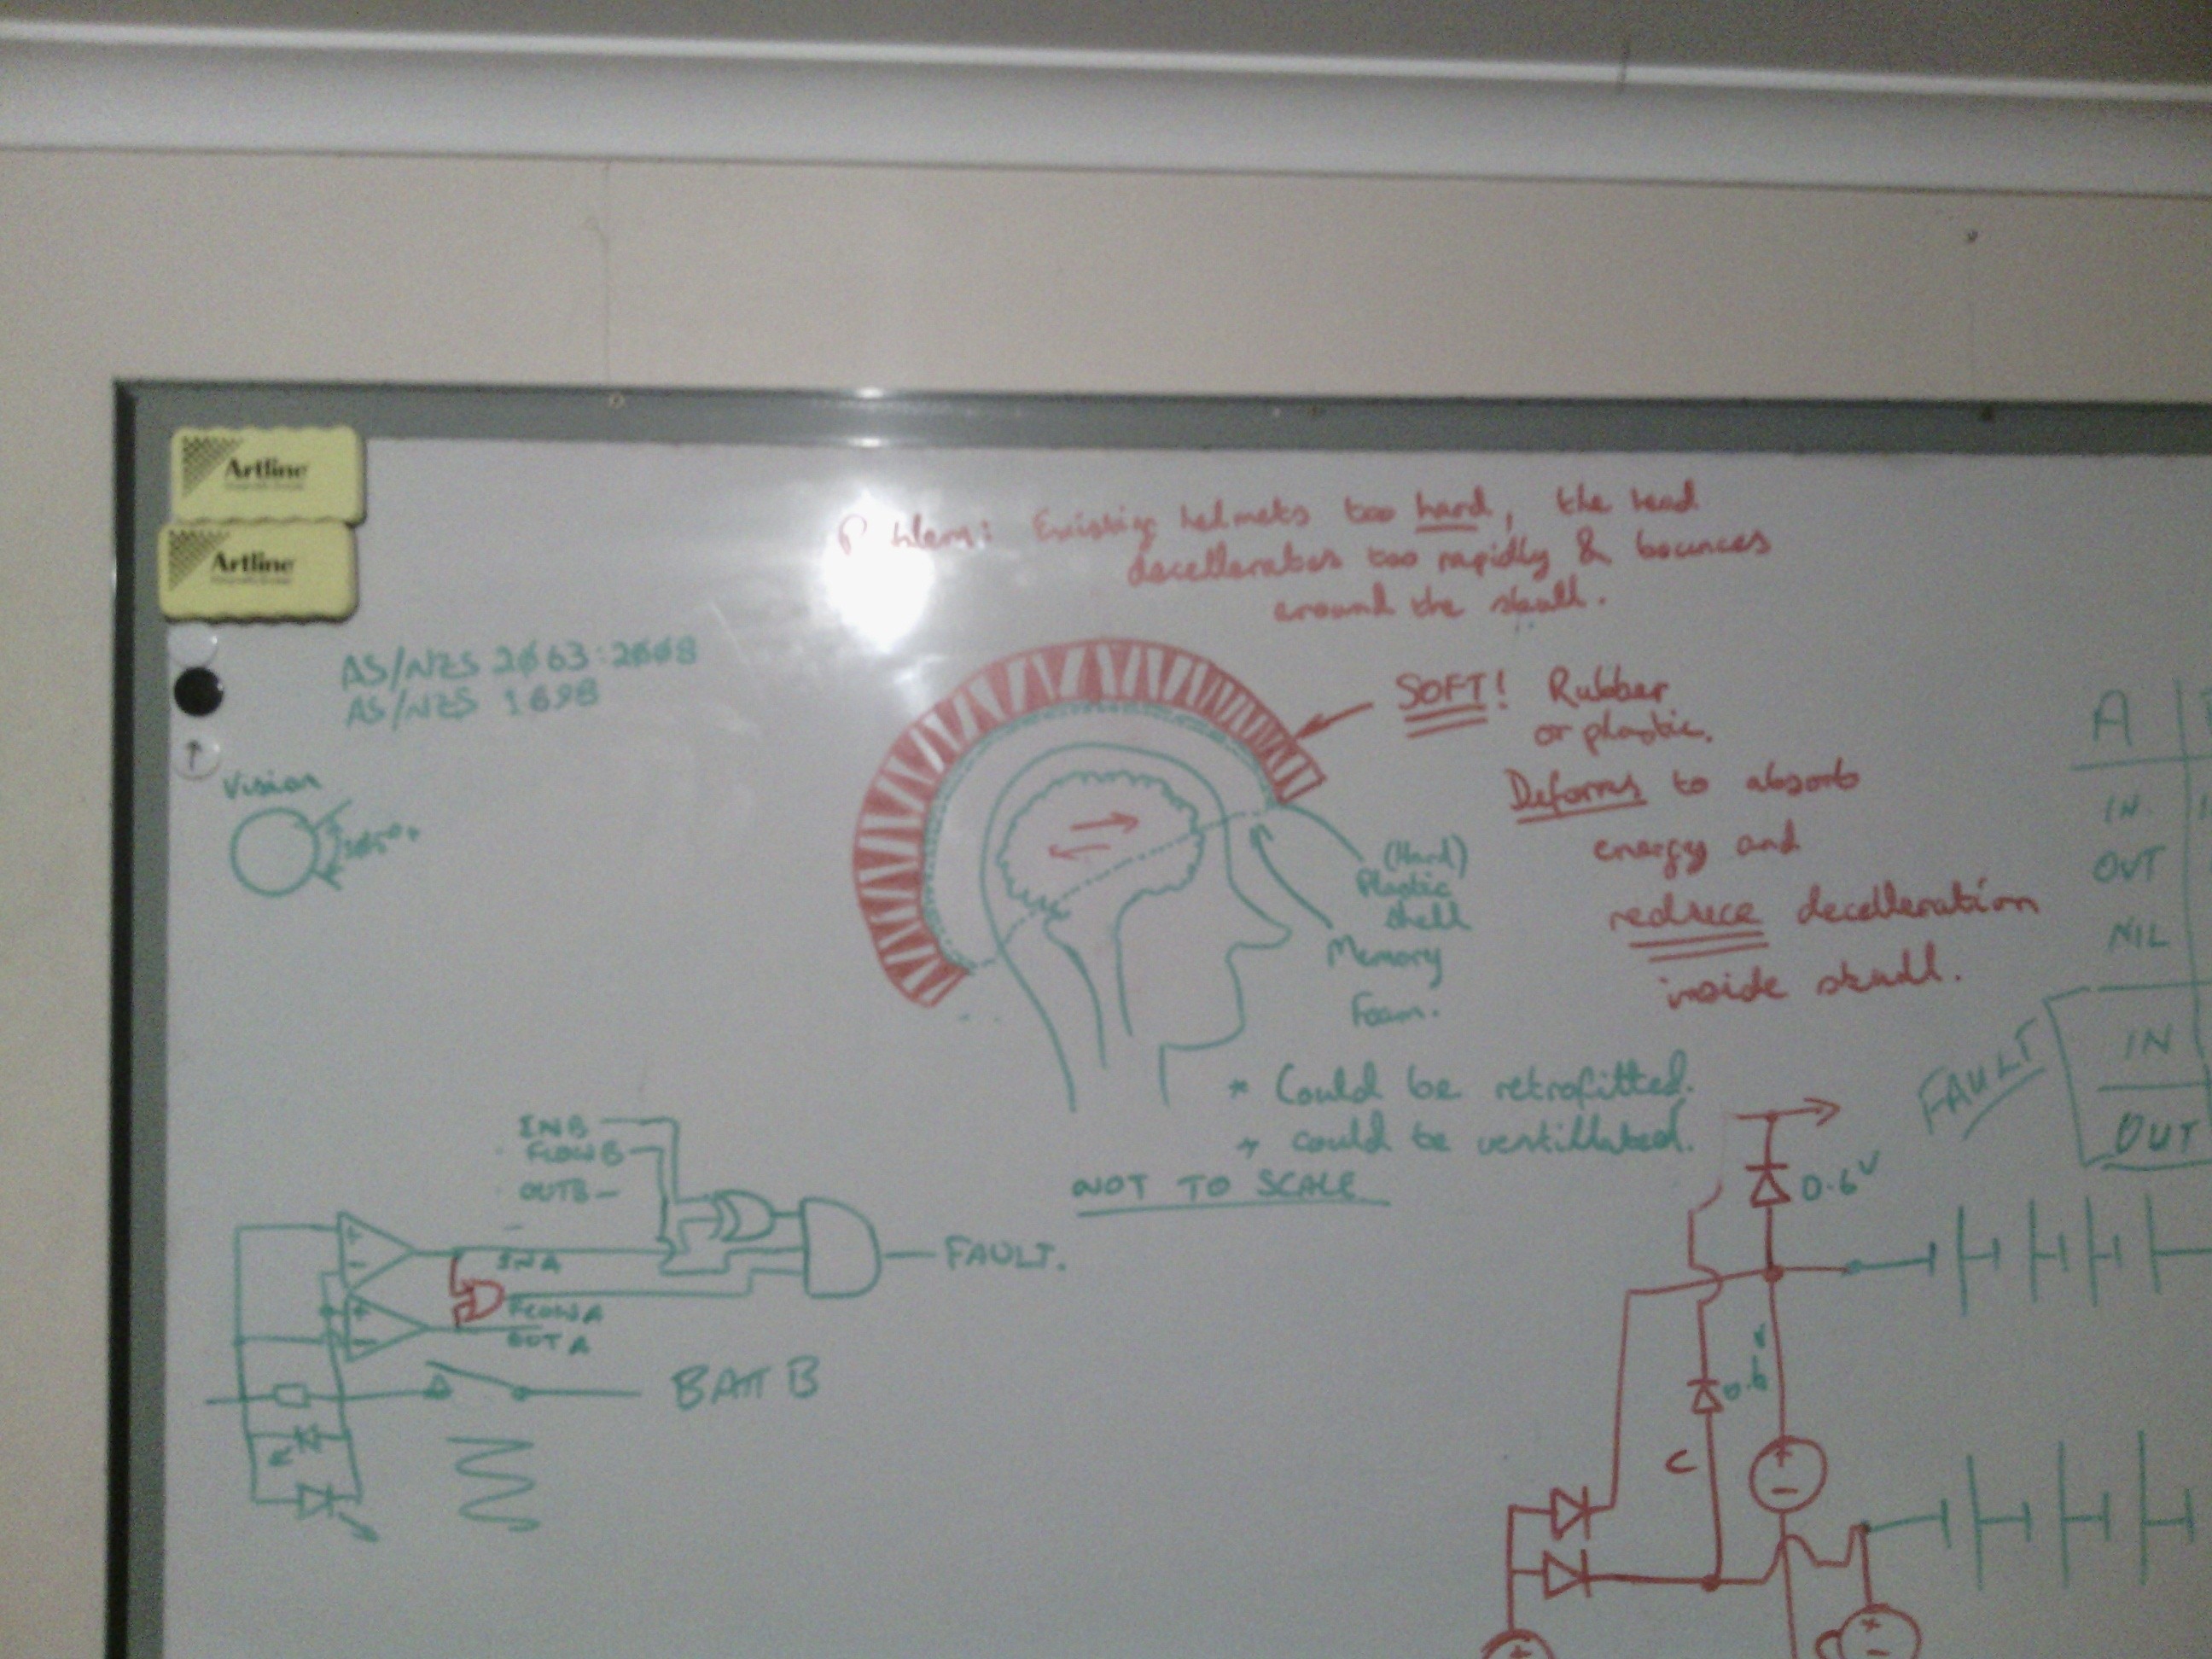 Artline
Artline
Problem: Existing helmets too hard, the head
decellerates too rapidly & bounces
around the skull.
AS/NZS 2063:2008
AS/NZS 1698
Vision
105°+
SOFT! Rubber
or plastic.
Deforms to absorb
energy and
reduce decelleration
inside skull.
(Hard)
Plastic
shell
Memory
Foam.
* Could be retrofitted.
* could be ventillated.
NOT TO SCALE
A
IN
OUT
NIL
FAULT
IN
OUT
IN B
FLOW B
OUT B
+
-
IN A
+
-
FLOW A
OUT A
FAULT.
BATT B
0.6V
0.6V
C
+
-
+
+
-